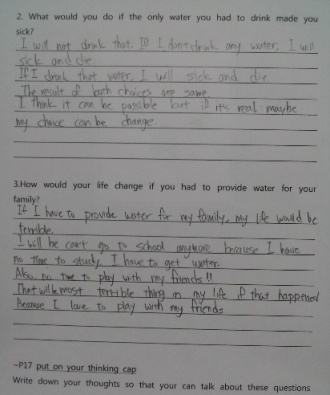 2. What would you do if the only water you had to drink made you
sick?
I will not drink that. If I don't drink any water, I will
sick and die.
If I drink that water, I will sick and die
The result of both choices are same.
I think it can be possible but if it's real maybe
my choice can be change.
3.How would your life change if you had to provide water for your
family?
If I have to provide water for my family, my life would be
terrible.
I will be can't go to school anymore because I have
no time to study. I have to get water.
Also, no time to play with my friends!!
That will be most terrible thing in my life if that happened
Because I love to play with my friends
~P17 put on your thinking cap
Write down your thoughts so that your can talk about these questions